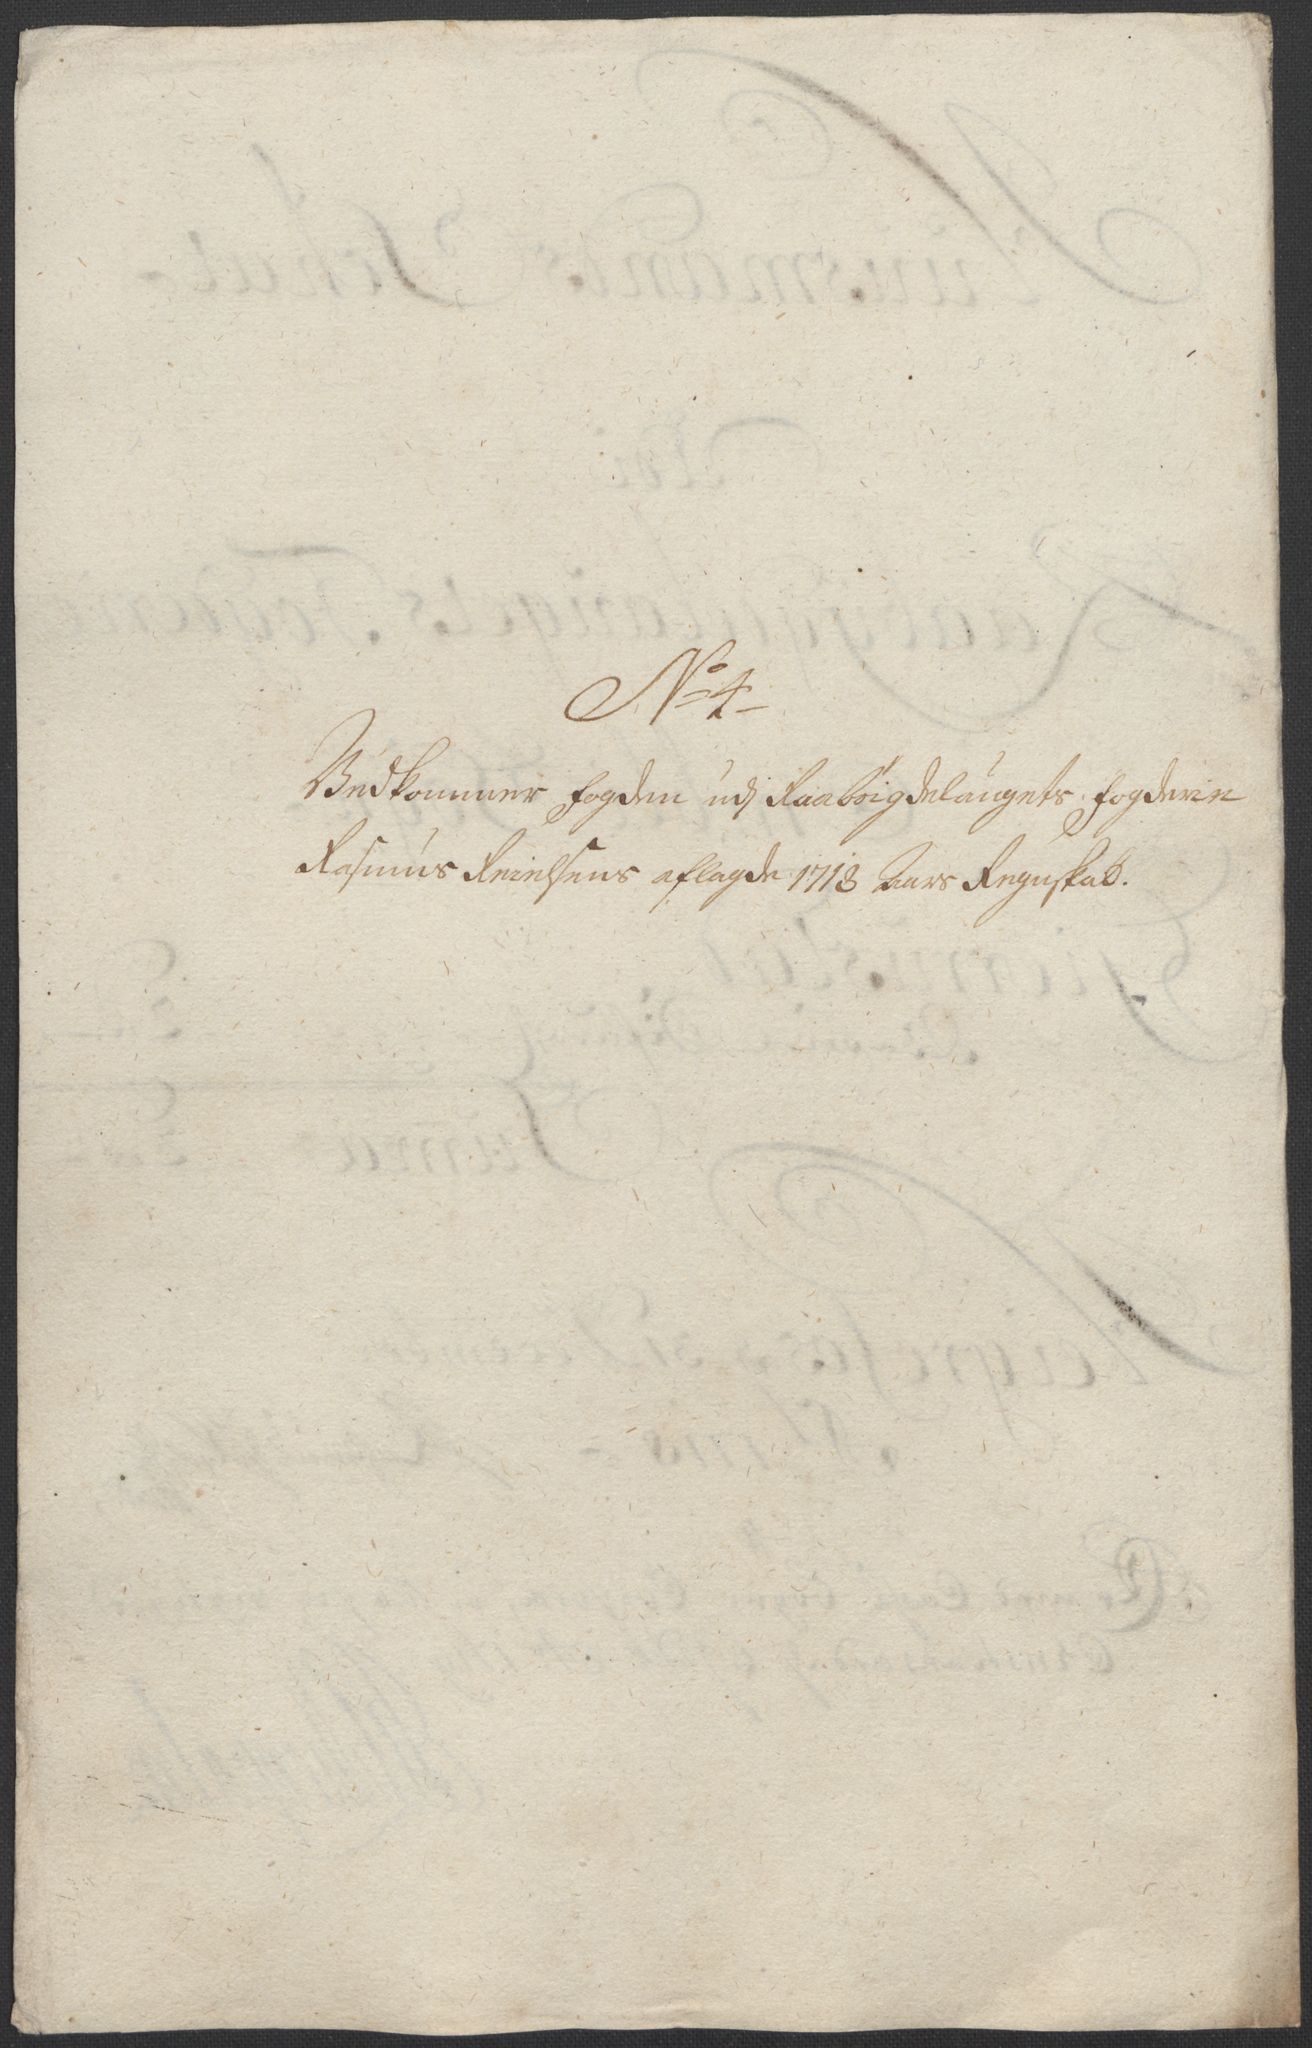 No 4
Vedkommer fogden udj Raabÿgdelaugets fogderie
Rasmus Reiersens aflagde 1718 Aars Regnskab.